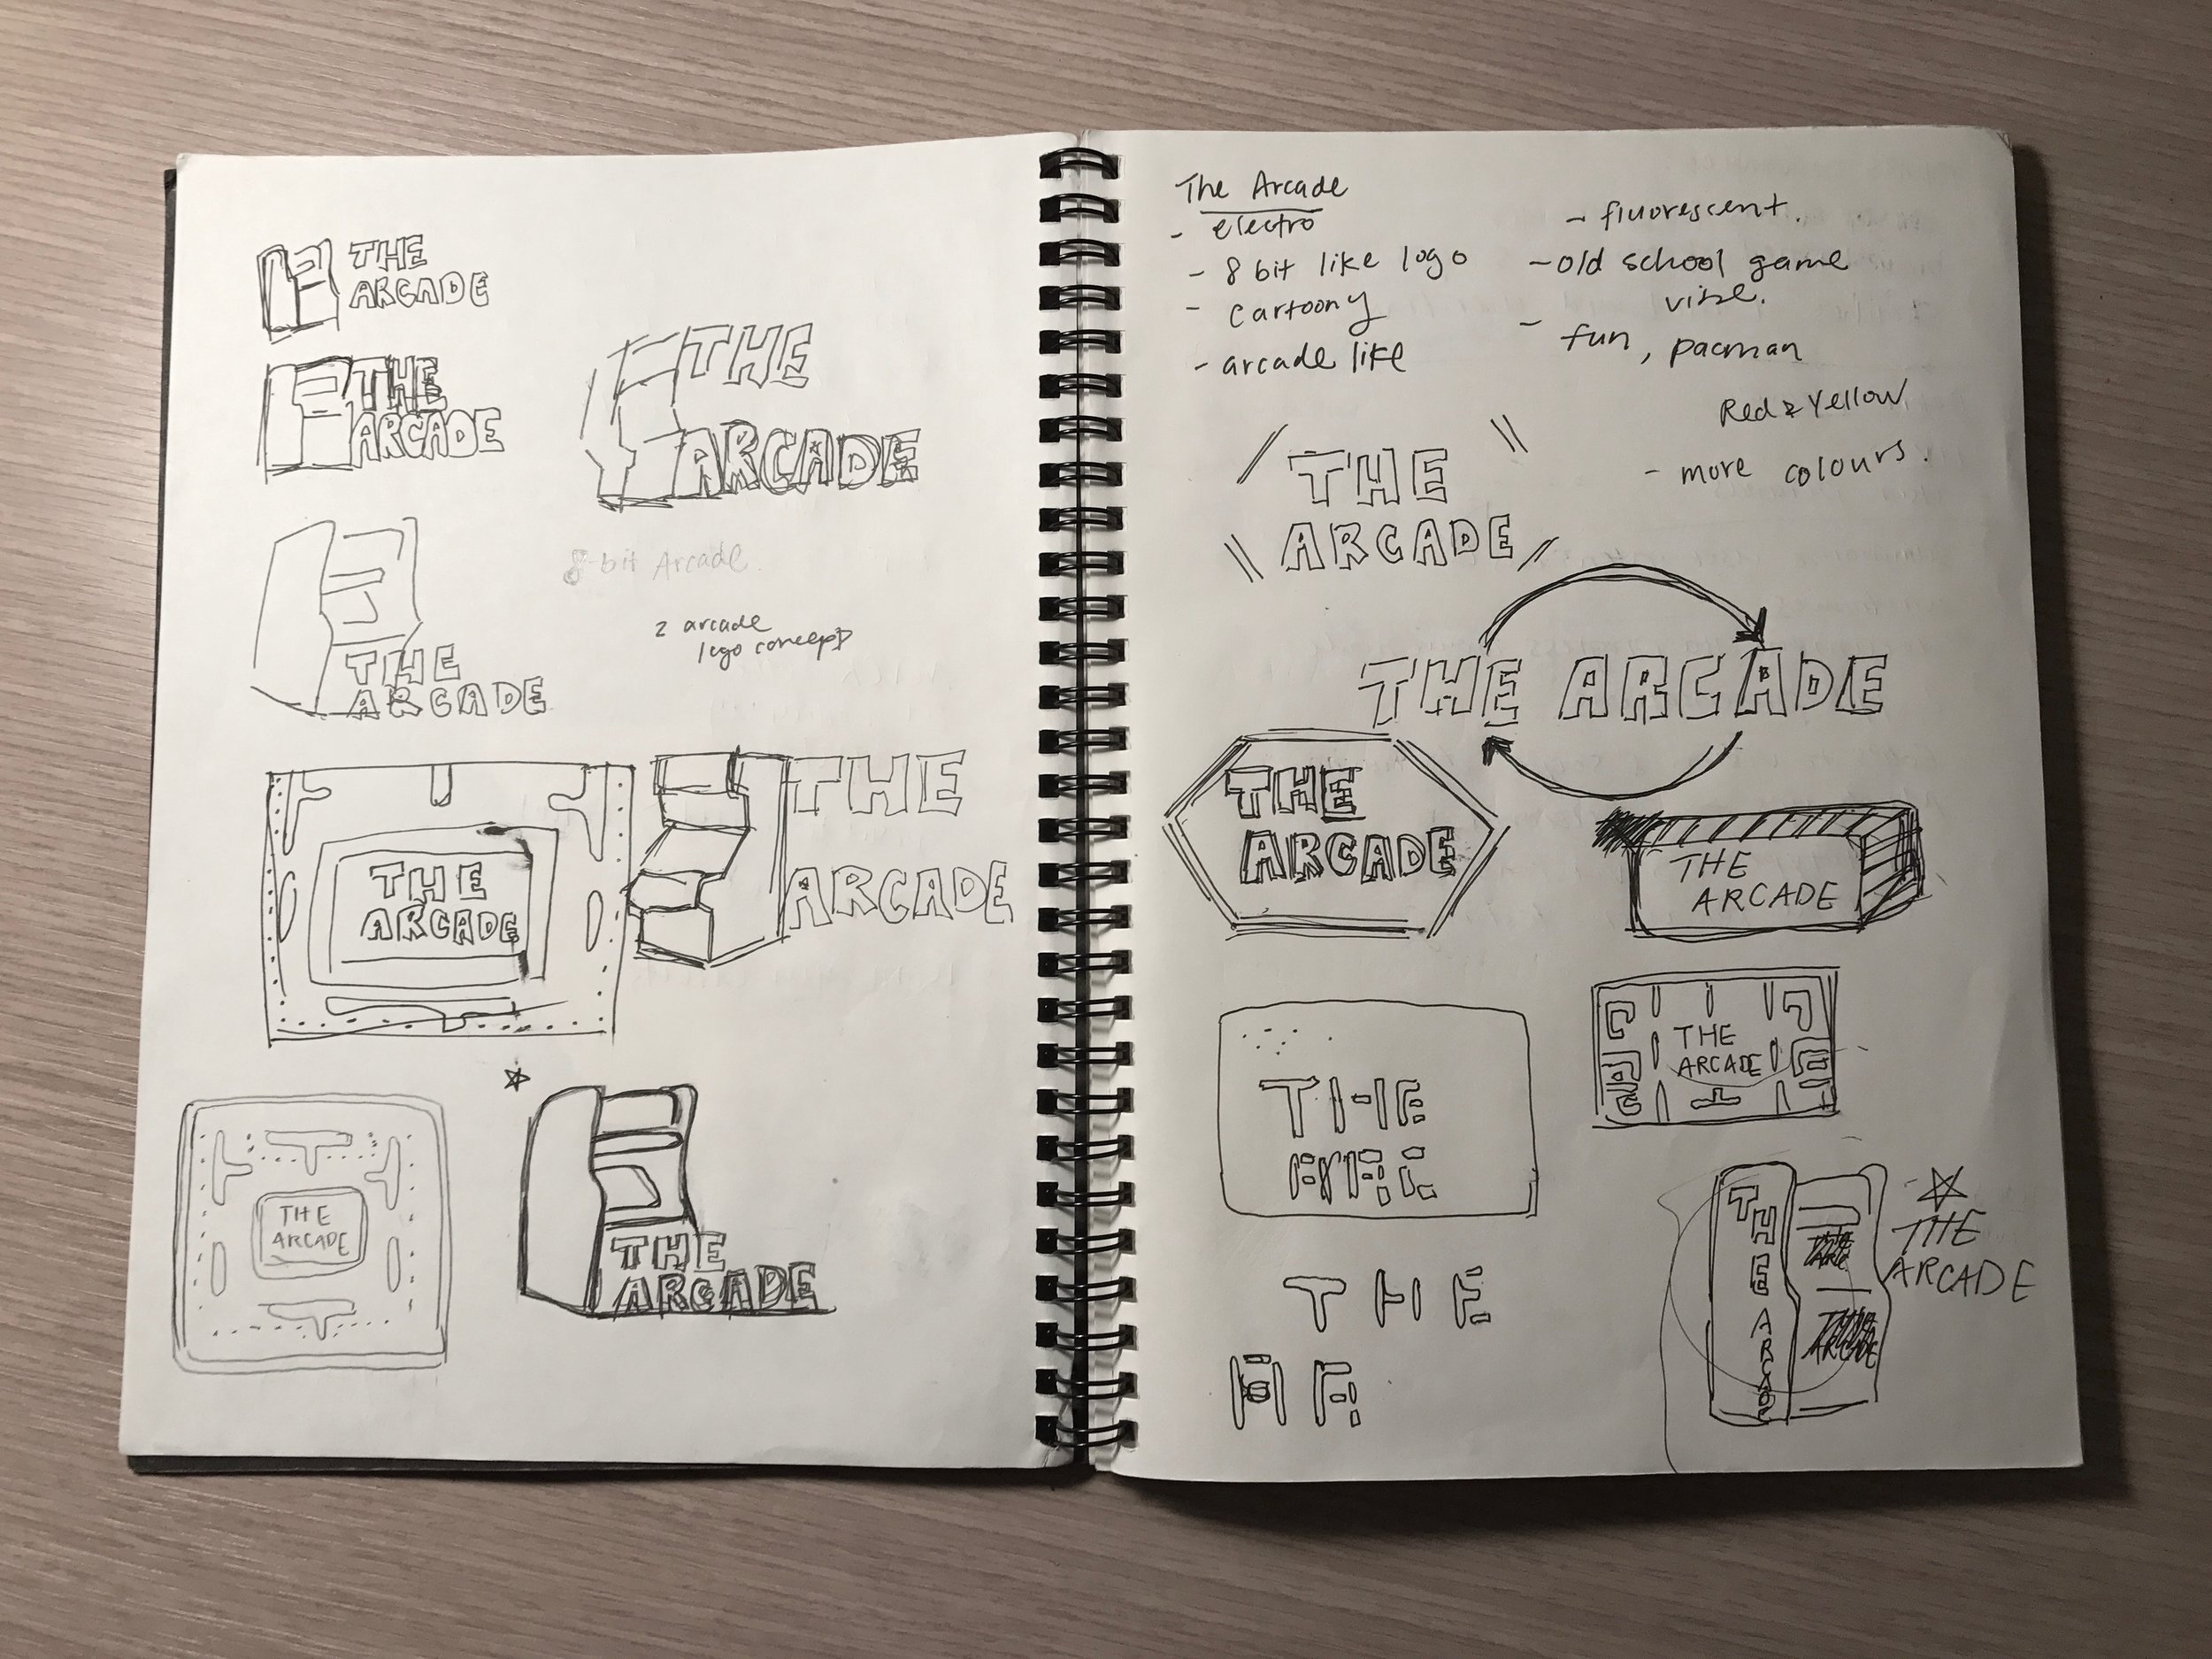 THE
ARCADE
THE
ARCADE
THE
ARCADE
THE
ARCADE
8-bit Arcade.
2 arcade
logo concept
THE
ARCADE
THE
ARCADE
THE
ARCADE
THE
ARCADE
The Arcade
- electro
- 8 bit like logo
- cartoony
- arcade like
- fluorescent.
- old school game
vibe.
- fun, pacman
Red & Yellow
- more colours.
THE
ARCADE
THE ARCADE
THE
ARCADE
THE
ARCADE
THE
ARC
THE
ARCADE
THE
AR
THE ARCADE
THE
ARCADE